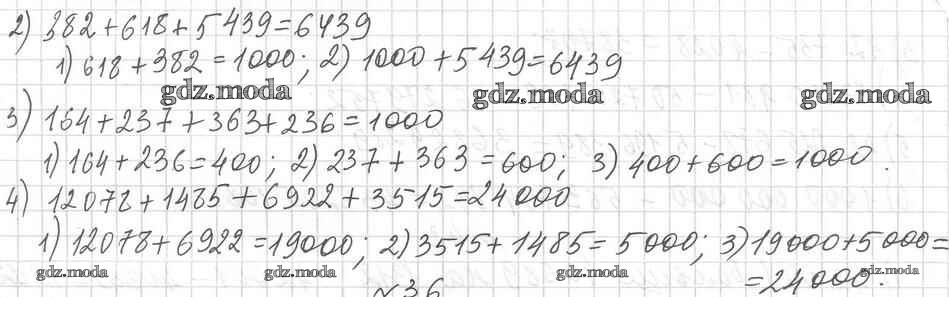 2) 382+618+5439=6439
1) 618+382=1000; 2) 1000+5439=6439
gdz.moda gdz.moda gdz.moda
3) 164+237+363+236=1000
1) 164+236=400; 2) 237+363=600; 3) 400+600=1000.
4) 12078+1485+6922+3515=24000
1) 12078+6922=19000; 2) 3515+1485=5000; 3) 19000+5000=
gdz.moda gdz.moda gdz.moda gdz.moda
=24000.
№36